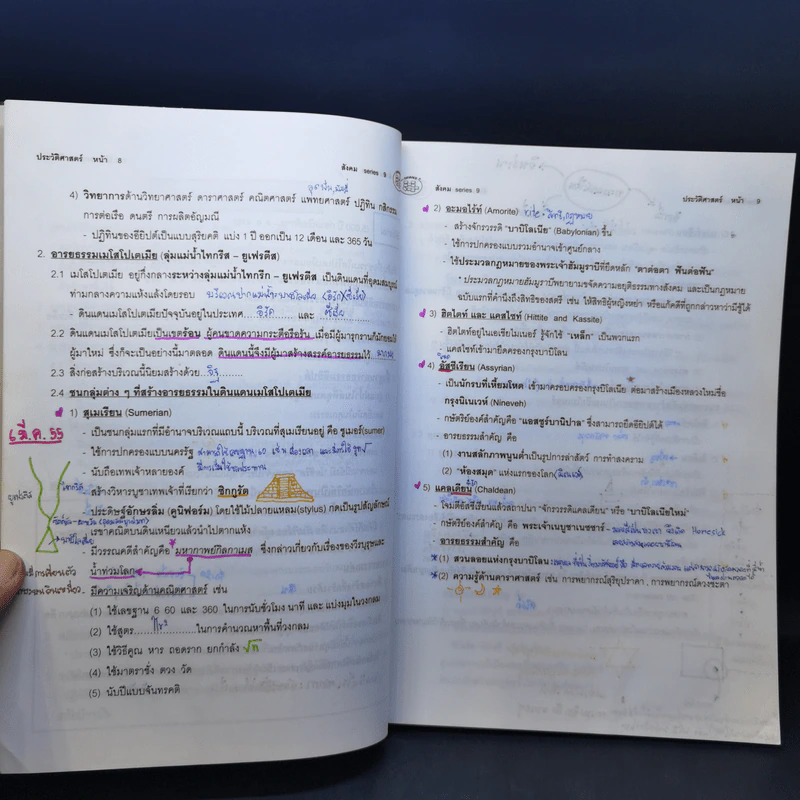 ประวัติศาสตร์ หน้า 8
สังคม series 9
4) วิทยาการด้านวิทยาศาสตร์ ดาราศาสตร์ คณิตศาสตร์ แพทยศาสตร์ ปฏิทิน กสิกรรม
การต่อเรือ ดนตรี การผลิตอัญมณี
- ปฏิทินของอียิปต์เป็นแบบสุริยคติ แบ่ง 1 ปี ออกเป็น 12 เดือน และ 365 วัน
2. อารยธรรมเมโสโปเตเมีย (ลุ่มแม่น้ำไทกรีส - ยูเฟรตีส)
2.1 เมโสโปเตเมีย อยู่กึ่งกลางระหว่างลุ่มแม่น้ำไทกรีก - ยูเฟรตีส เป็นดินแดนที่อุดมสมบูรณ์
ท่ามกลางความแห้งแล้งโดยรอบ
- ดินแดนเมโสโปเตเมียปัจจุบันอยู่ในประเทศ....อิรัก.... และ ซีเรีย
2.2 ดินแดนเมโสโปเตเมียเป็นเขตร้อน ผู้คนขาดความกระตือรือร้น เมื่อมีผู้มารุกรานก็มักยอมให้
ผู้มาใหม่ ซึ่งก็จะเป็นอย่างนี้มาตลอด ดินแดนนี้จึงมีผู้มาสร้างสรรค์อารยธรรมไว้
2.3 สิ่งก่อสร้างบริเวณนี้นิยมสร้างด้วย....อิฐ....
2.4 ชนกลุ่มต่าง ๆ ที่สร้างอารยธรรมในดินแดนเมโสโปเตเมีย
1) สุเมเรียน (Sumerian)
มี.ค. 55
- เป็นชนกลุ่มแรกที่มีอำนาจบริเวณแถบนี้ บริเวณที่สุเมเรียนอยู่ คือ ซูเมอร์(sumer)
- ใช้การปกครองแบบนครรัฐ
- นับถือเทพเจ้าหลายองค์
สร้างวิหารบูชาเทพเจ้าที่เรียกว่า ซิกกูรัต
ประดิษฐ์อักษรลิ่ม (คูนิฟอร์ม) โดยใช้ไม้ปลายแหลม(stylus) กดเป็นรูปสัญลักษณ์
เรขาคณิตบนดินเหนียวแล้วนำไปตากแห้ง
- มีวรรณคดีสำคัญคือ มหากาพย์กิลกาเมส ซึ่งกล่าวเกี่ยวกับเรื่องของวีรบุรุษและ
น้ำท่วมโลก
มีความเจริญด้านคณิตศาสตร์ เช่น
(1) ใช้เลขฐาน 6 60 และ 360 ในการนับชั่วโมง นาที และ แบ่งมุมในวงกลม
(2) ใช้สูตร....πr²....ในการคำนวณหาพื้นที่วงกลม
(3) ใช้วิธีคูณ หาร ถอดราก ยกกำลัง √n
(4) ใช้มาตราชั่ง ตวง วัด
(5) นับปีแบบจันทรคติ
สังคม series 9
ประวัติศาสตร์ หน้า 9
2) อะมอไรท์ (Amorite)
- สร้างจักรวรรดิ "บาบิโลเนีย" (Babylonian) ขึ้น
- ใช้การปกครองแบบรวมอำนาจเข้าสู่ศูนย์กลาง
- ใช้ประมวลกฎหมายของพระเจ้าฮัมมูราบีที่ยึดหลัก "ตาต่อตา ฟันต่อฟัน"
* ประมวลกฎหมายฮัมมูราบีพยายามขจัดความอยุติธรรมทางสังคม และเป็นกฎหมาย
ฉบับแรกที่คำนึงถึงสิทธิของสตรี เช่น ให้สิทธิผู้หญิงหย่า หรือแก้คดีที่ถูกกล่าวหาว่ามีชู้ได้
3) ฮิตไตท์ และ แคสไซท์ (Hittite and Kassite)
- ฮิตไตท์อยู่ในเอเชียไมเนอร์ รู้จักใช้ "เหล็ก" เป็นพวกแรก
- แคสไซท์เข้ามายึดครองกรุงบาบิโลน
4) อัสซีเรียน (Assyrian)
- เป็นนักรบที่เหี้ยมโหด เข้ามาครอบครองกรุงบิโลเนีย ต่อมาสร้างเมืองหลวงใหม่ชื่อ
กรุงนิเนเวห์ (Nineveh)
- กษัตริย์องค์สำคัญคือ "แอสซูร์บานิปาล" ซึ่งสามารถยึดอียิปต์ได้
- อารยธรรมสำคัญ คือ
(1) งานสลักภาพนูนต่ำเป็นรูปการล่าสัตว์ การทำสงคราม
(2) "ห้องสมุด" แห่งแรกของโลก
5) แคลเดียน (Chaldean)
- โจมตีอัสซีเรียนแล้วสถาปนา "จักรวรรดิแคลเดียน" หรือ "บาบิโลเนียใหม่"
- กษัตริย์องค์สำคัญ คือ พระเจ้าเนบูชาเนซซาร์
- อารยธรรมสำคัญคือ
(1) สวนลอยแห่งกรุงบาบิโลน
(2) ความรู้ด้านดาราศาสตร์ เช่น การพยากรณ์สุริยุปราคา , การพยากรณ์ดวงชะตา